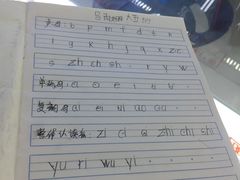 声母: b p m f d t n
l g k h j q x z c
s zh ch sh · r y w
单韵母: a o e i u ü ·
复韵母 ai ei ui ao ou ·
整体认读音: zi ci si zhi chi shi
yu ri wu yi · · · ·